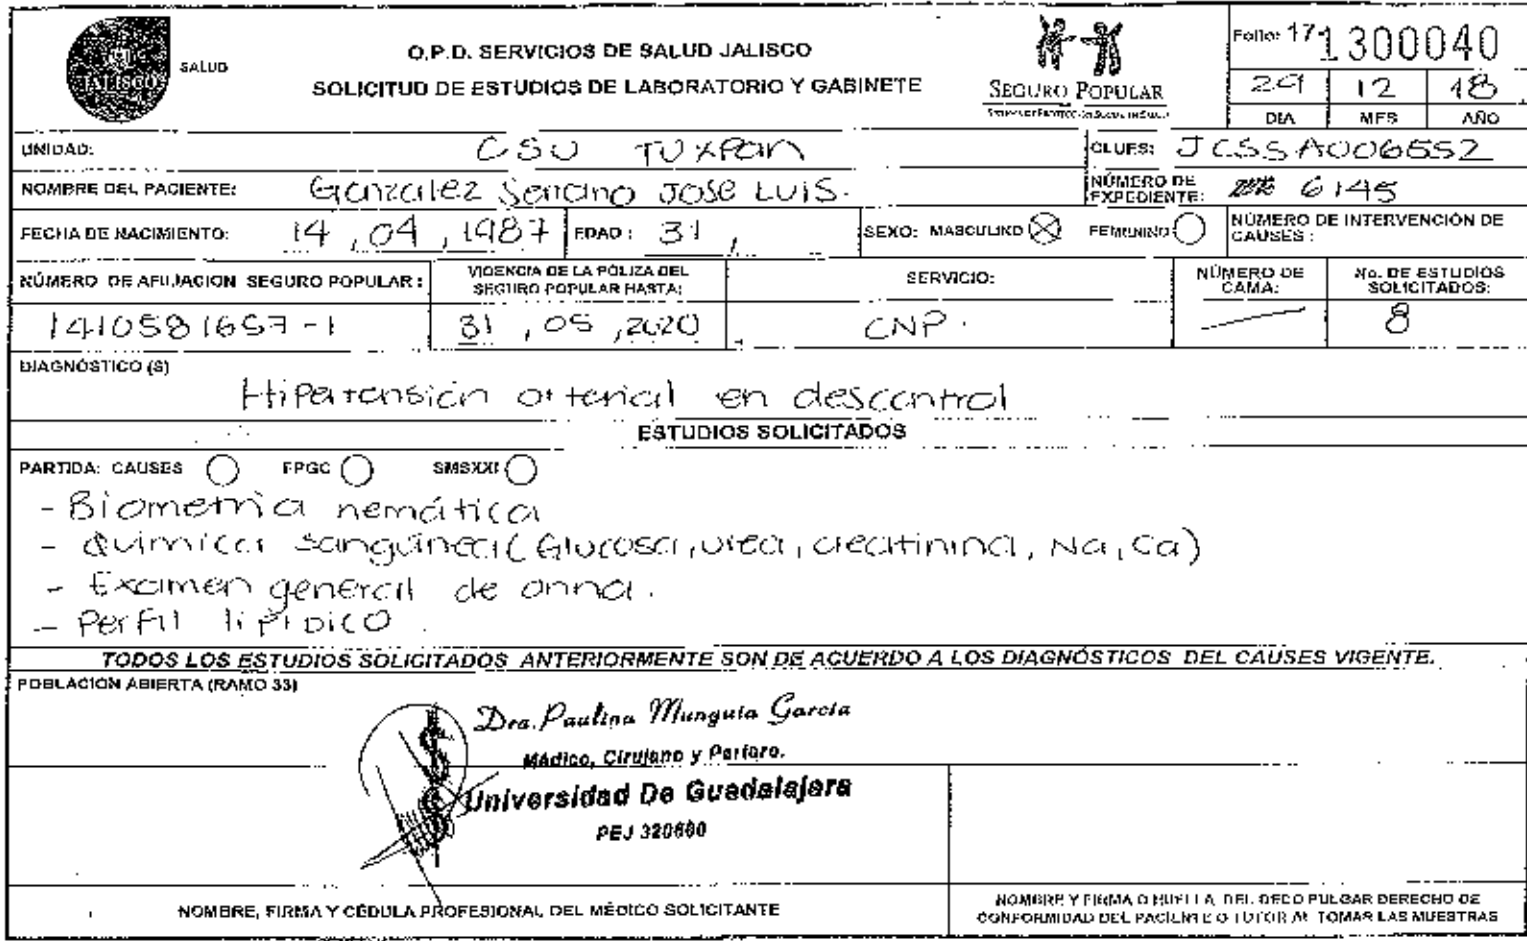 JALISCO
SALUD
O.P.D. SERVICIOS DE SALUD JALISCO
SOLICITUD DE ESTUDIOS DE LABORATORIO Y GABINETE
SEGURO POPULAR
Folio: 17-1300040
29 12 18
DIA MES AÑO
UNIDAD: CSU TUXPAN
CLUES: JCSSA006552
NOMBRE DEL PACIENTE: González Serrano JOSE LUIS.
NÚMERO DE EXPEDIENTE: 6145
FECHA DE NACIMIENTO: 14, 04, 1987 EDAD: 31,
SEXO: MASCULINO FEMENINO
NÚMERO DE INTERVENCIÓN DE CAUSES:
NÚMERO DE AFILIACION SEGURO POPULAR:
VIGENCIA DE LA PÓLIZA DEL SEGURO POPULAR HASTA:
SERVICIO:
NÚMERO DE CAMA:
No. DE ESTUDIOS SOLICITADOS:
1410581657-1
31, 05, 2020
CNP.
8
DIAGNÓSTICO (S)
Hipertensión arterial en descontrol
ESTUDIOS SOLICITADOS
PARTIDA: CAUSES FPGC SMSXXI
- Biometria hemática
- Química sanguínea (Glucosa, urea, creatinina, Na, Ca)
- Examen general de orina.
- Perfil lipidico.
TODOS LOS ESTUDIOS SOLICITADOS ANTERIORMENTE SON DE ACUERDO A LOS DIAGNÓSTICOS DEL CAUSES VIGENTE.
POBLACIÓN ABIERTA (RAMO 33)
Dra. Paulina Munguía García
Médico, Cirujano y Partero.
Universidad De Guadalajara
PEJ 320680
NOMBRE, FIRMA Y CÉDULA PROFESIONAL DEL MÉDICO SOLICITANTE
NOMBRE Y FIRMA O HUELLA DEL DEDO PULGAR DERECHO DE
CONFORMIDAD DEL PACIENTE O TUTOR AL TOMAR LAS MUESTRAS